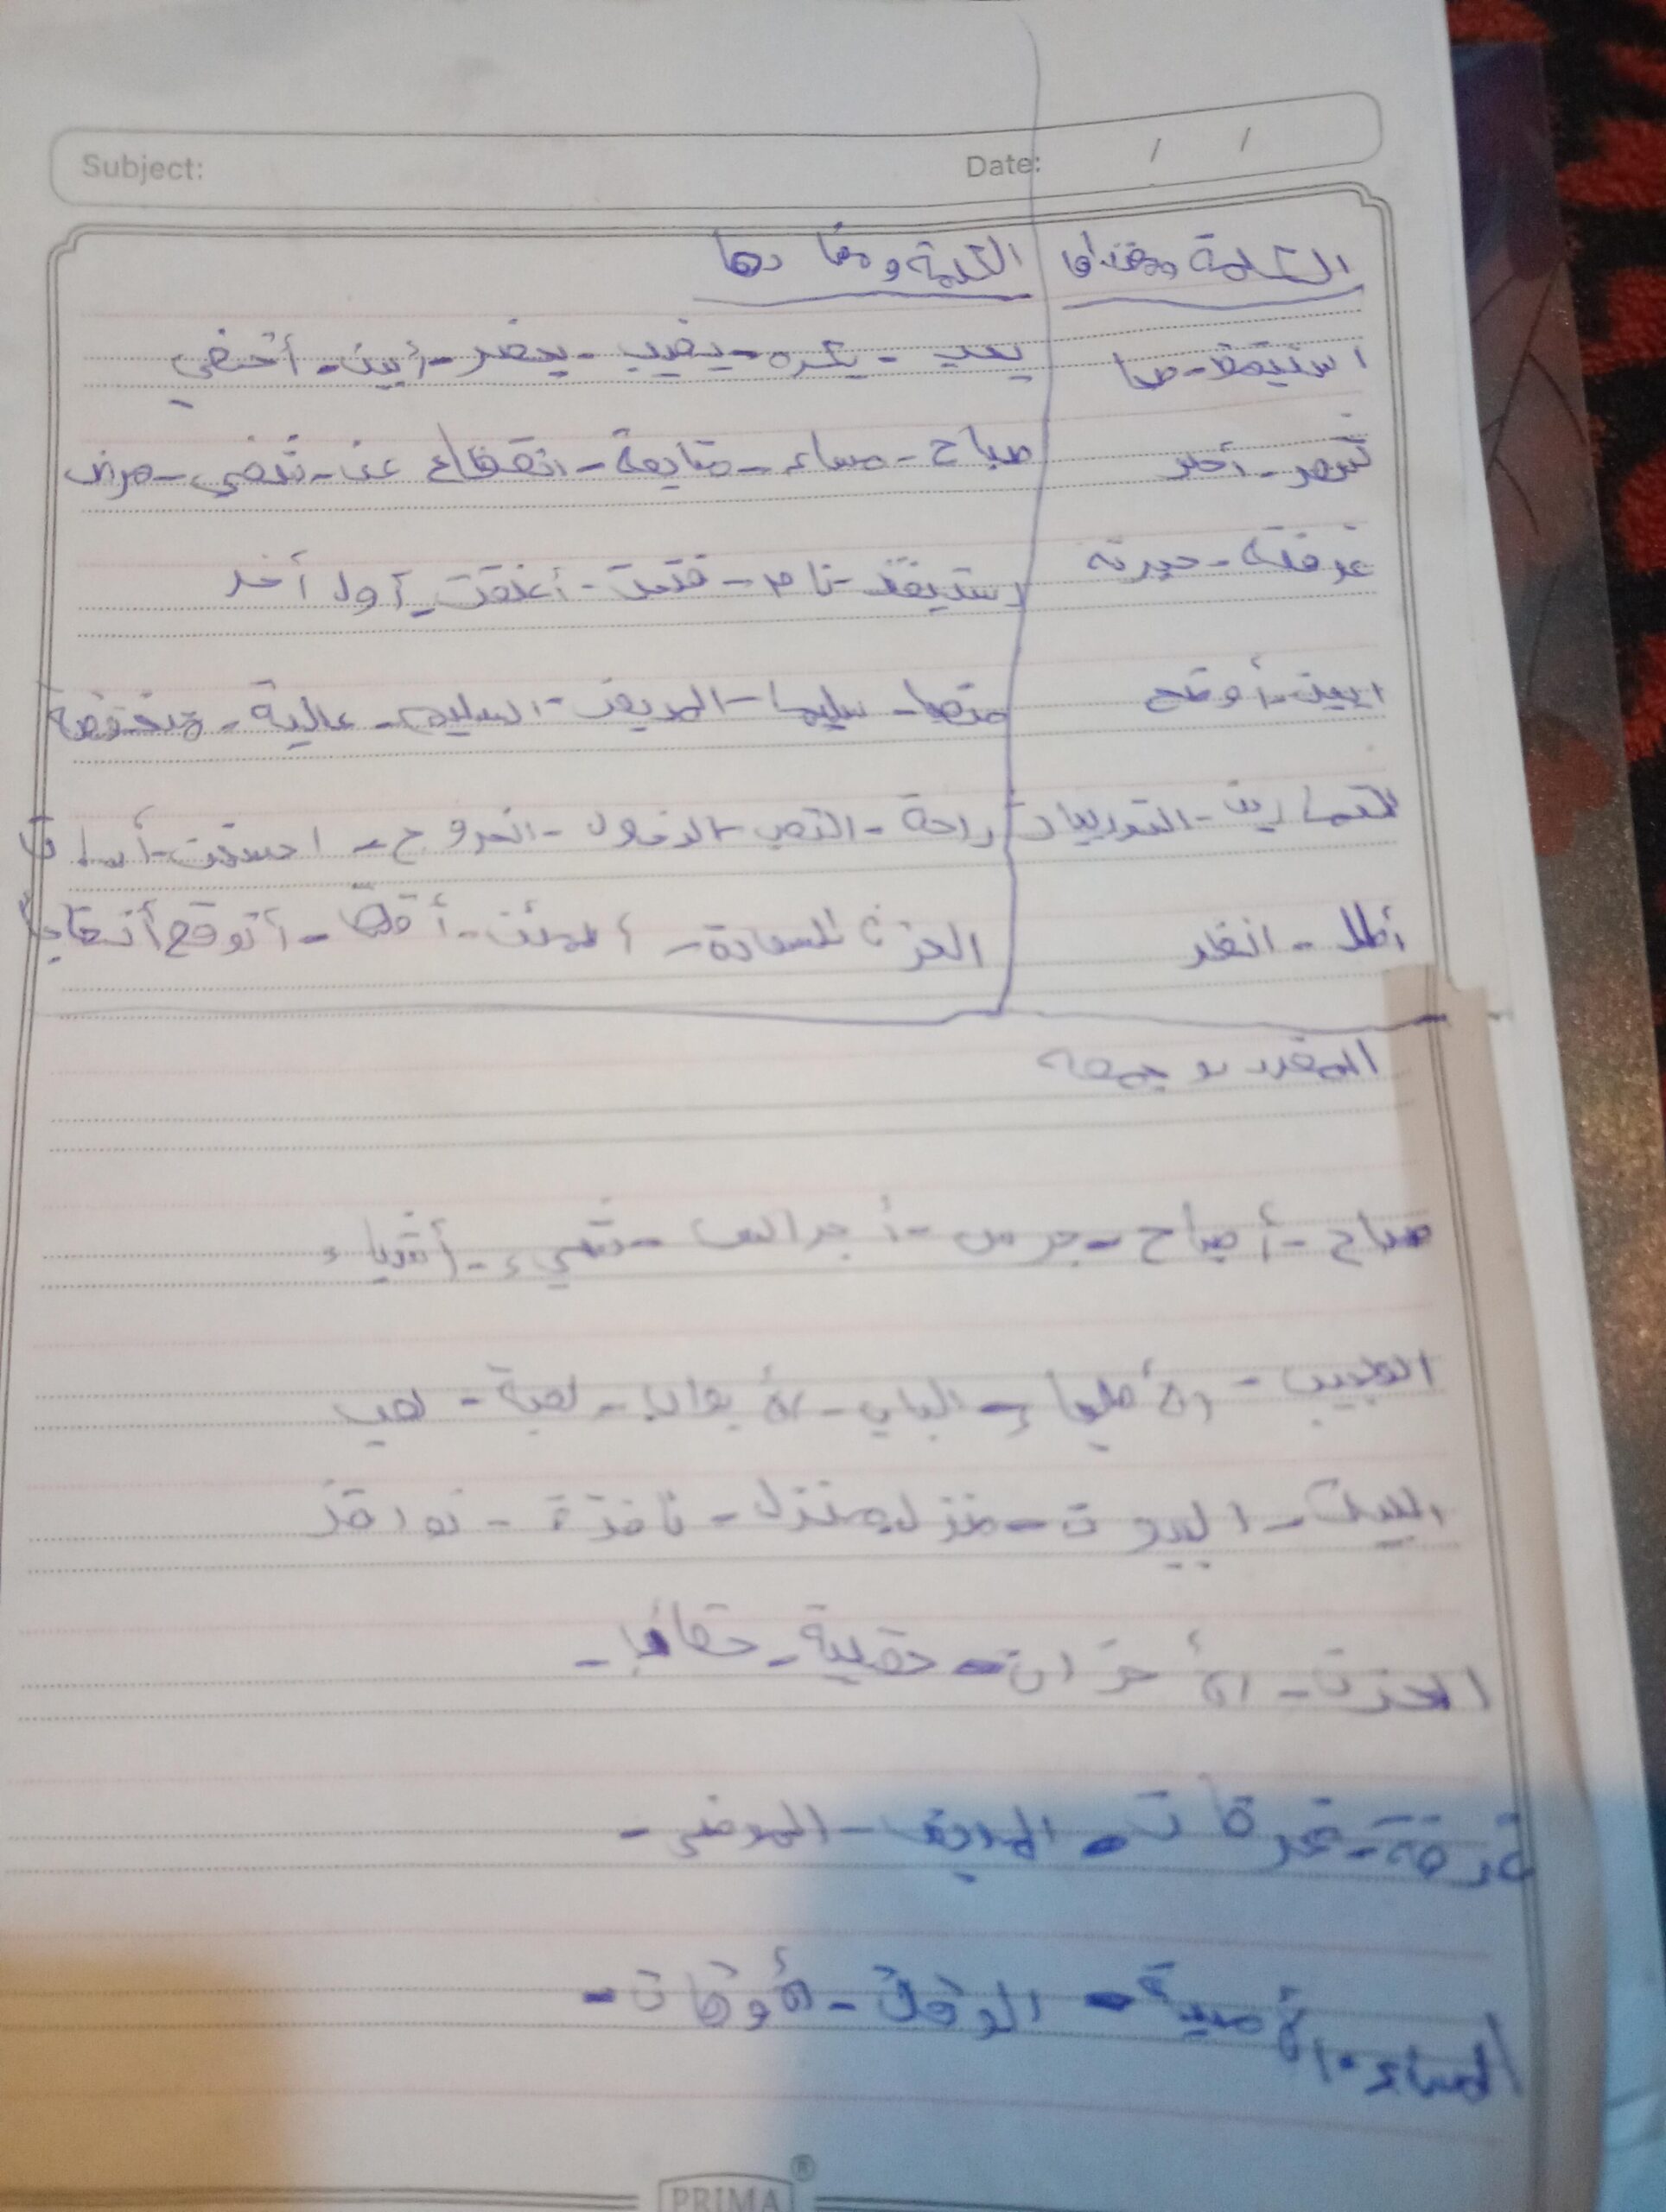 Subject: Date: / /
الكلمة ومعناها الكلمة ومضادها
استيقظ - صحا يحب - يكره - يغيب - يحضر - أبين - أخفي
صباح - مساء - متابعة - انقطاع عن - شفي - مرض
غرفته - حجرته استيقظ - نام - فتحت - أغلقت - أول أخر
ابين - أوضح سليما - المريض - السليم - عالية - منخفضة
التمارين - التدريبات راحة - التعب - الدخول - الخروج - احسنت - أسات
أطل - انظر الحزن السعادة - أتوقع أتفاجأ
المفرد و جمعه
صباح - أصباح - جرس - أجراس - شيء - أشياء
الطبيب - الأطباء - الباب - الأبواب - لعبة - لعب
البيت - البيوت - منزل - نافذة - نوافذ
الحزن - الأحزان - حقيبة - حقائب -
غرفة - غرفات - المريض - المرضى -
المساء - الأمسية - الوقت - الأوقات -
PRIMA ®